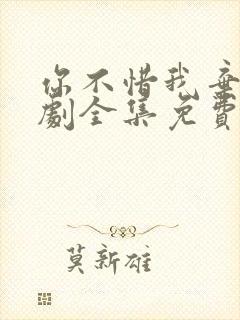 你不惜我棄
劇全集免費
莫新雄